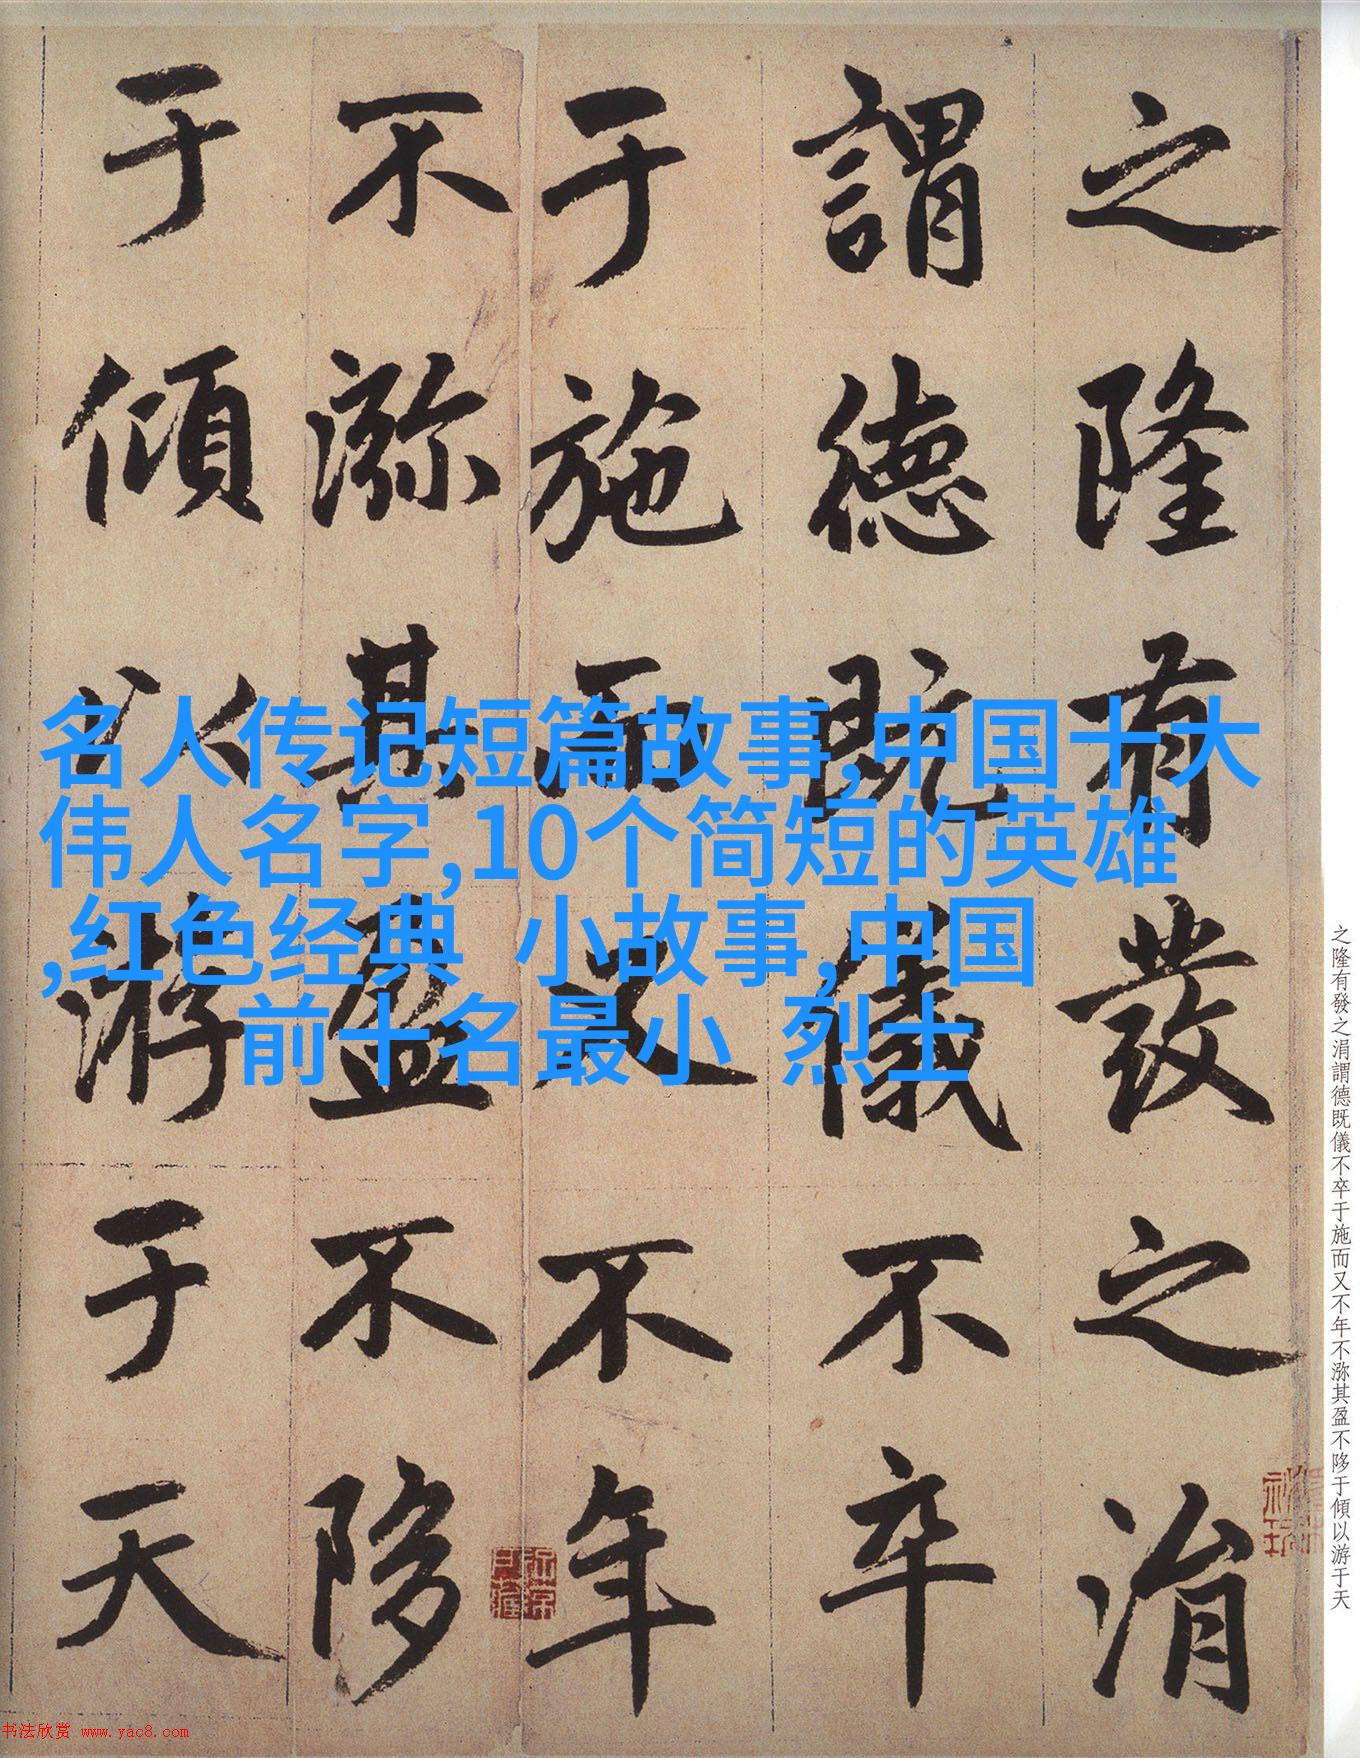 之隆有發之涓
謂德既儀不卒
于施而又不年
不瀰其盈不陊
于傾以游于天
名人传记短篇故事,中国十大
伟人名字,10个简短的英雄
,红色经典 小故事,中国
前十名最小 烈士
之隆有發之涓謂德既儀不卒于施而又不年不瀰其盈不陊于傾以游于天
书法欣赏 www.yac8.com